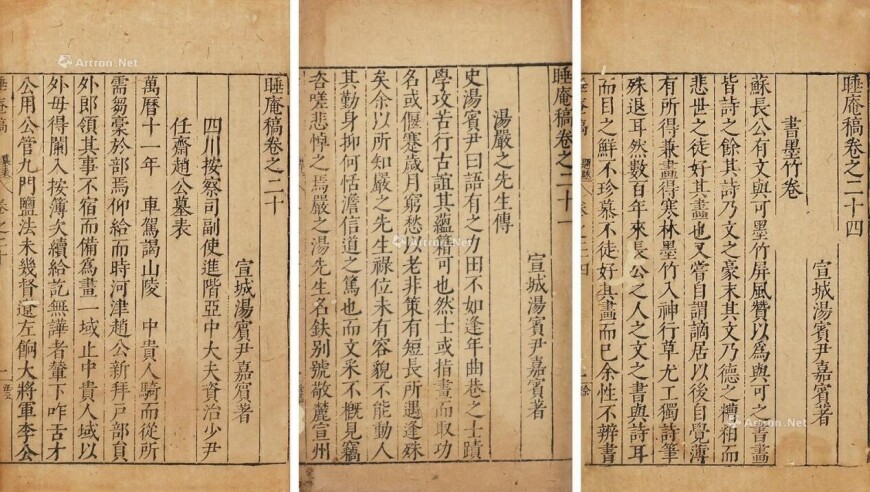 睡庵稿卷之二十
宣城湯賓尹嘉賓著
四川按察司副使進階亞中大夫資治少尹
任齋趙公墓表
萬曆十一年 車駕謁山陵 中貴人騎而從所
需芻槀於部焉仰給而時河津趙公新拜戶部員
外郎領其事不宿而備為畫一域止中貴人域以
外毋得闌入按簿次續給訖無譁者輦下咋舌才
公用公管九門鹽法未幾督遼左餉大將軍李公
睡庵稿 卷之二十
睡庵稿卷之二十一
宣城湯賓尹嘉賓著
湯嚴之先生傳
史湯賓尹曰語有之力田不如逢年曲巷之士蹟
學攻苦行古誼其蘊籍可也然士或指畫而取功
名或偃蹇歲月窮愁以老非策有短長所遇逢殊
矣余以所知嚴之先生祿位未有容貌不能動人
其勤身抑何恬澹信道之篤也而文采不概見竊
咨嗟悲悼之焉嚴之湯先生名鈇別號敬麓宣州
睡庵稿卷之二十四
宣城湯賓尹嘉賓著
書墨竹卷
蘇長公有文與可墨竹屏風贊以為與可之書畫
皆詩之餘其詩乃文之毫末其文乃德之糟粕而
悲世之徒好其畫也又嘗自謂謫居以後自覺薄
有所得兼畫得寒林墨竹入神行草尤工獨詩筆
殊退耳然數百年來長公之人之文之書與詩耳
而目之鮮不珍慕不徒好其畫而已余性不辨書
睡庵稿 卷之二十四
Artron.Net
Artron.Net
Artron.Net